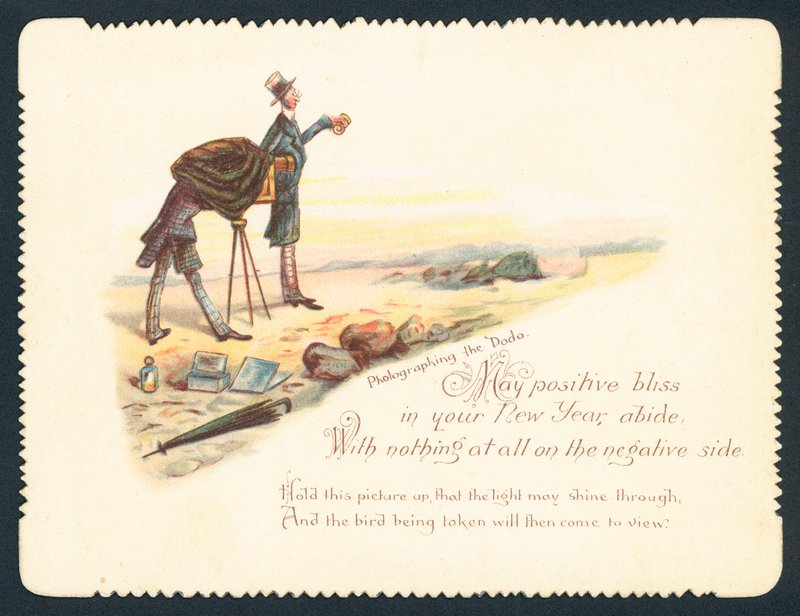 Photographing the Dodo.
May positive bliss
in your New Year, abide,
With nothing at all on the negative side.
Hold this picture up, that the light may shine through,
And the bird being taken will then come to view.